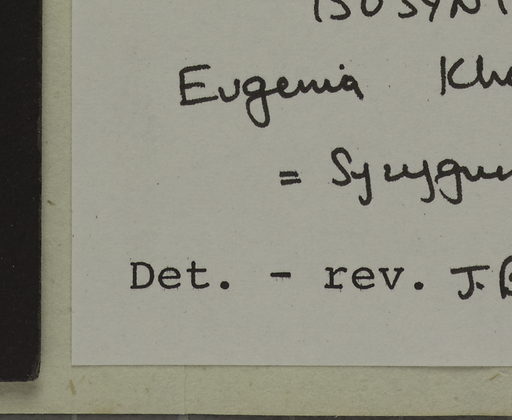 ISOSYNT
Eugenia Kha
= Syzygiu
Det. - rev. J.B